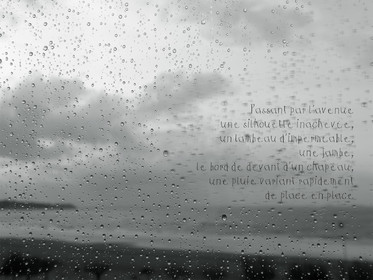 Passant par l'avenue
une silhouette inachevée,
un lambeau d'imperméable,
une jambe,
le bord de devant d'un chapeau,
une pluie variant rapidement
de place en place